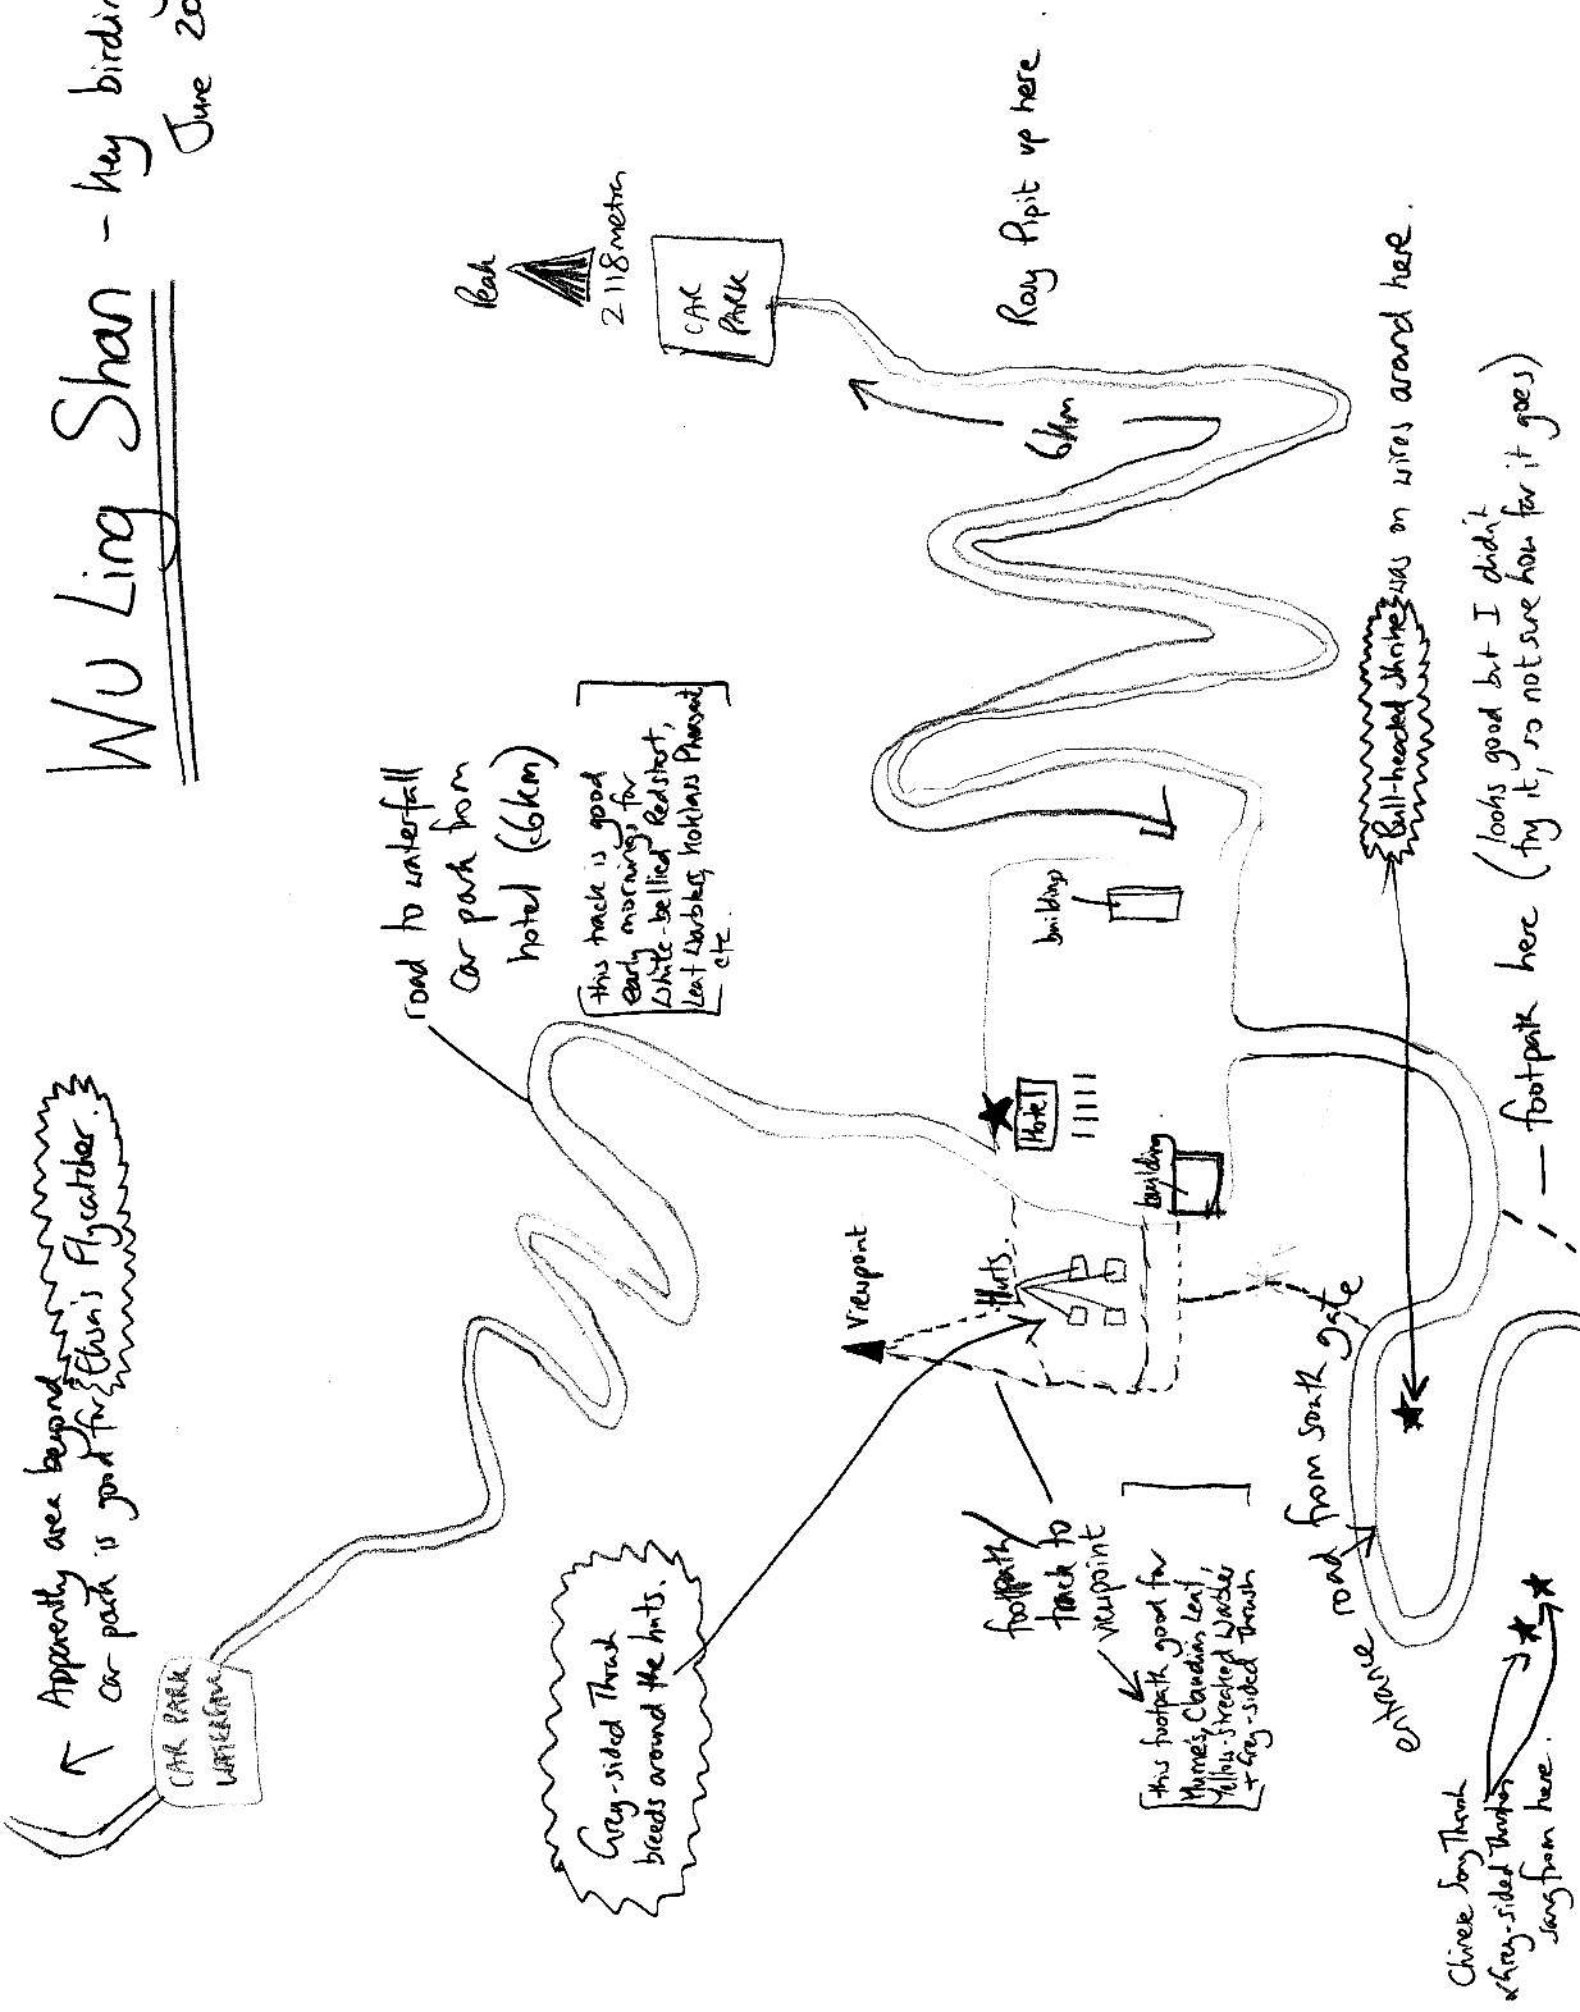 Wu Ling Shan - key birdin
June 20
↑ Apparently area beyond
car park is good for Elisa's Flycatcher.
CAR PARK
WATERFALL
road to waterfall
car park from
hotel (6km)
[this track is good
early morning for
White-bellied Redstart,
Leaf Warblers, Koklass Pheasant
etc.]
Peak
2118 metres
CAR
PARK
Rosy Pipit up here.
6km
Grey-sided Thrush
breeds around the huts.
Viewpoint
Huts.
Hotel
building
building
footpath/
track to
viewpoint
[this footpath good for
Hume's, Claudia's Leaf,
Yellow-streaked Warbler
+ Grey-sided Thrush]
entrance road from south gate
Bull-headed Shrike was on wires around here.
footpath here (looks good but I didn't
try it, so not sure how far it goes)
Chinese Song Thrush
& Grey-sided Thrushes
sang from here.